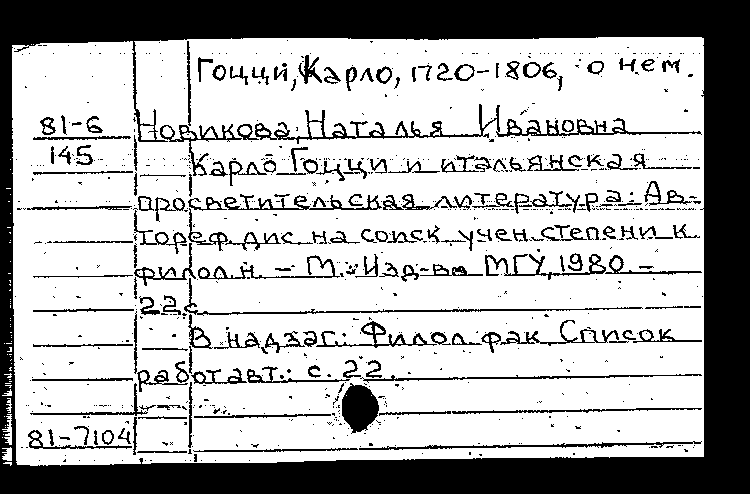 Гоцци, Карло, 1720-1806, о нем.
81-6 Новикова, Наталья Ивановна
145 Карло Гоцци и итальянская
просветительская литература: Ав-
тореф. дис. на соиск. учен. степени к.
филол. н. - М.: Изд-во МГУ, 1980. -
22 с.
В надзаг.: Филол. фак. Список
работ авт.: с. 22.
81-7104